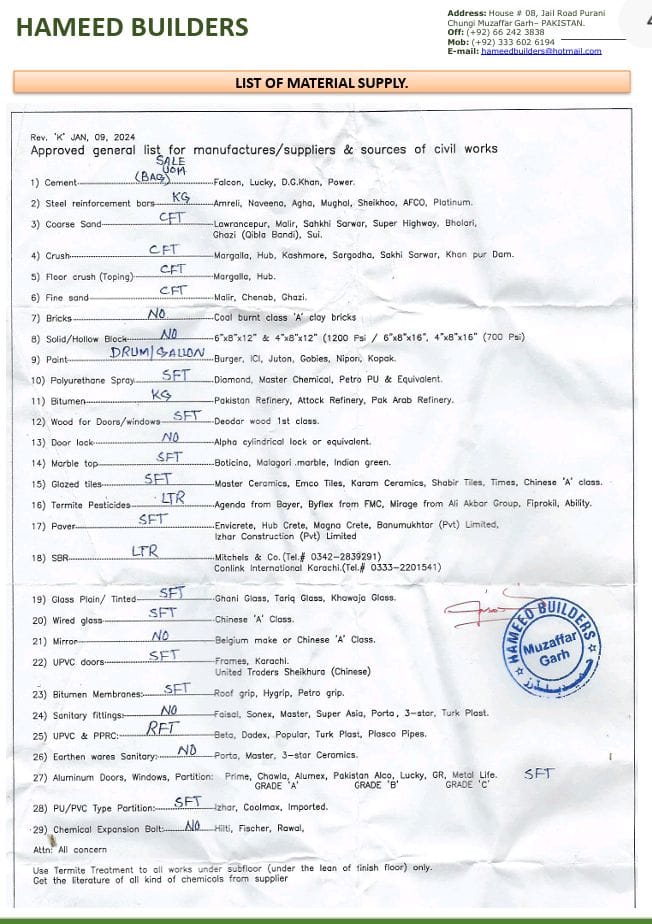 HAMEED BUILDERS
Address: House # 08, Jail Road Purani
Chungi Muzaffar Garh– PAKISTAN.
Off: (+92) 66 242 3838
Mob: (+92) 333 602 6194
E-mail: hameedbuilders@hotmail.com
4
LIST OF MATERIAL SUPPLY.
Rev. 'K' JAN, 09, 2024
Approved general list for manufactures/suppliers & sources of civil works
SALE
UOM
1) Cement (BAG) Falcon, Lucky, D.G.Khan, Power.
2) Steel reinforcement bars KG Amreli, Naveena, Agha, Mughal, Sheikhoo, AFCO, Platinum.
3) Coarse Sand CFT Lawrancepur, Malir, Sahkhi Sarwar, Super Highway, Bholari,
Ghazi (Qibla Bandi), Sui.
4) Crush CFT Margalla, Hub, Kashmore, Sargodha, Sakhi Sarwar, Khan pur Dam.
5) Floor crush (Toping) CFT Margalla, Hub.
6) Fine sand CFT Malir, Chenab, Ghazi.
7) Bricks NO Coal burnt class 'A' clay bricks
8) Solid/Hollow Block NO 6"x8"x12" & 4"x8"x12" (1200 Psi / 6"x8"x16", 4"x8"x16" (700 Psi)
9) Paint DRUM/GALLON Burger, ICI, Juton, Gobies, Nipon, Kopak.
10) Polyurethane Spray SFT Diamond, Master Chemical, Petro PU & Equivalent.
11) Bitumen KG Pakistan Refinery, Attock Refinery, Pak Arab Refinery.
12) Wood for Doors/windows SFT Deodar wood 1st class.
13) Door lock NO Alpha cylindrical lock or equivalent.
14) Marble top SFT Boticina, Malagori .marble, Indian green.
15) Glazed tiles SFT Master Ceramics, Emco Tiles, Karam Ceramics, Shabir Tiles, Times, Chinese 'A' class.
16) Termite Pesticides LTR Agenda from Bayer, Byflex from FMC, Mirage from Ali Akbar Group, Fiprokil, Ability.
17) Paver SFT Envicrete, Hub Crete, Magna Crete, Banumukhtar (Pvt) Limited,
Izhar Construction (Pvt) Limited
18) SBR LTR Mitchels & Co.(Tel.# 0342-2839291)
Conlink International Karachi.(Tel.# 0333-2201541)
19) Glass Plain/ Tinted SFT Ghani Glass, Tariq Glass, Khawaja Glass.
20) Wired glass SFT Chinese 'A' Class.
21) Mirror NO Belgium make or Chinese 'A' Class.
22) UPVC doors SFT Frames, Karachi.
United Traders Sheikhura (Chinese)
HAMEED BUILDERS
Muzaffar
Garh
23) Bitumen Membranes: SFT Roof grip, Hygrip, Petro grip.
24) Sanitary fittings: NO Faisal, Sonex, Master, Super Asia, Porta, 3-star, Turk Plast.
25) UPVC & PPRC: RFT Beta, Dadex, Popular, Turk Plast, Plasco Pipes.
26) Earthen wares Sanitary: NO Porta, Master, 3-star Ceramics.
27) Aluminum Doors, Windows, Partition: Prime, Chawla, Alumex, Pakistan Alco, Lucky, GR, Metal Life. SFT
GRADE 'A' GRADE 'B' GRADE 'C'
28) PU/PVC Type Partition: SFT Izhar, Coolmax, Imported.
29) Chemical Expansion Bolt: NO Hilti, Fischer, Rawal,
Attn: All concern
Use Termite Treatment to all works under subfloor (under the lean of finish floor) only.
Get the literature of all kind of chemicals from supplier